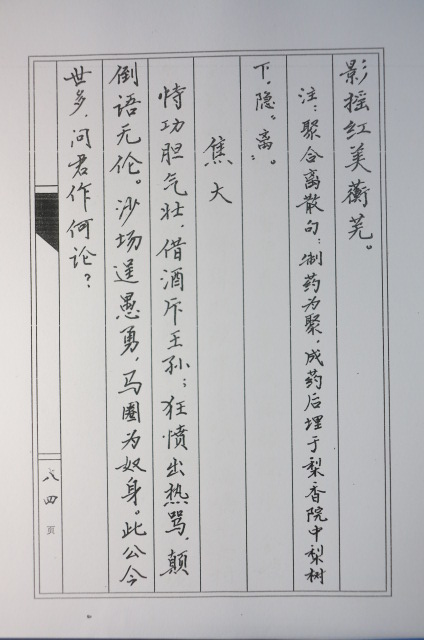 影摇红美蘅芜。
注：聚合离散句：制药为聚，成药后埋于梨香院中梨树
下，隐。离：。
焦大
恃功胆气壮，借酒斥王孙；狂愤出热骂，颠
倒语无伦。沙场逞愚勇，马圈为奴身。此公今
世多，问君作何论？
八四页